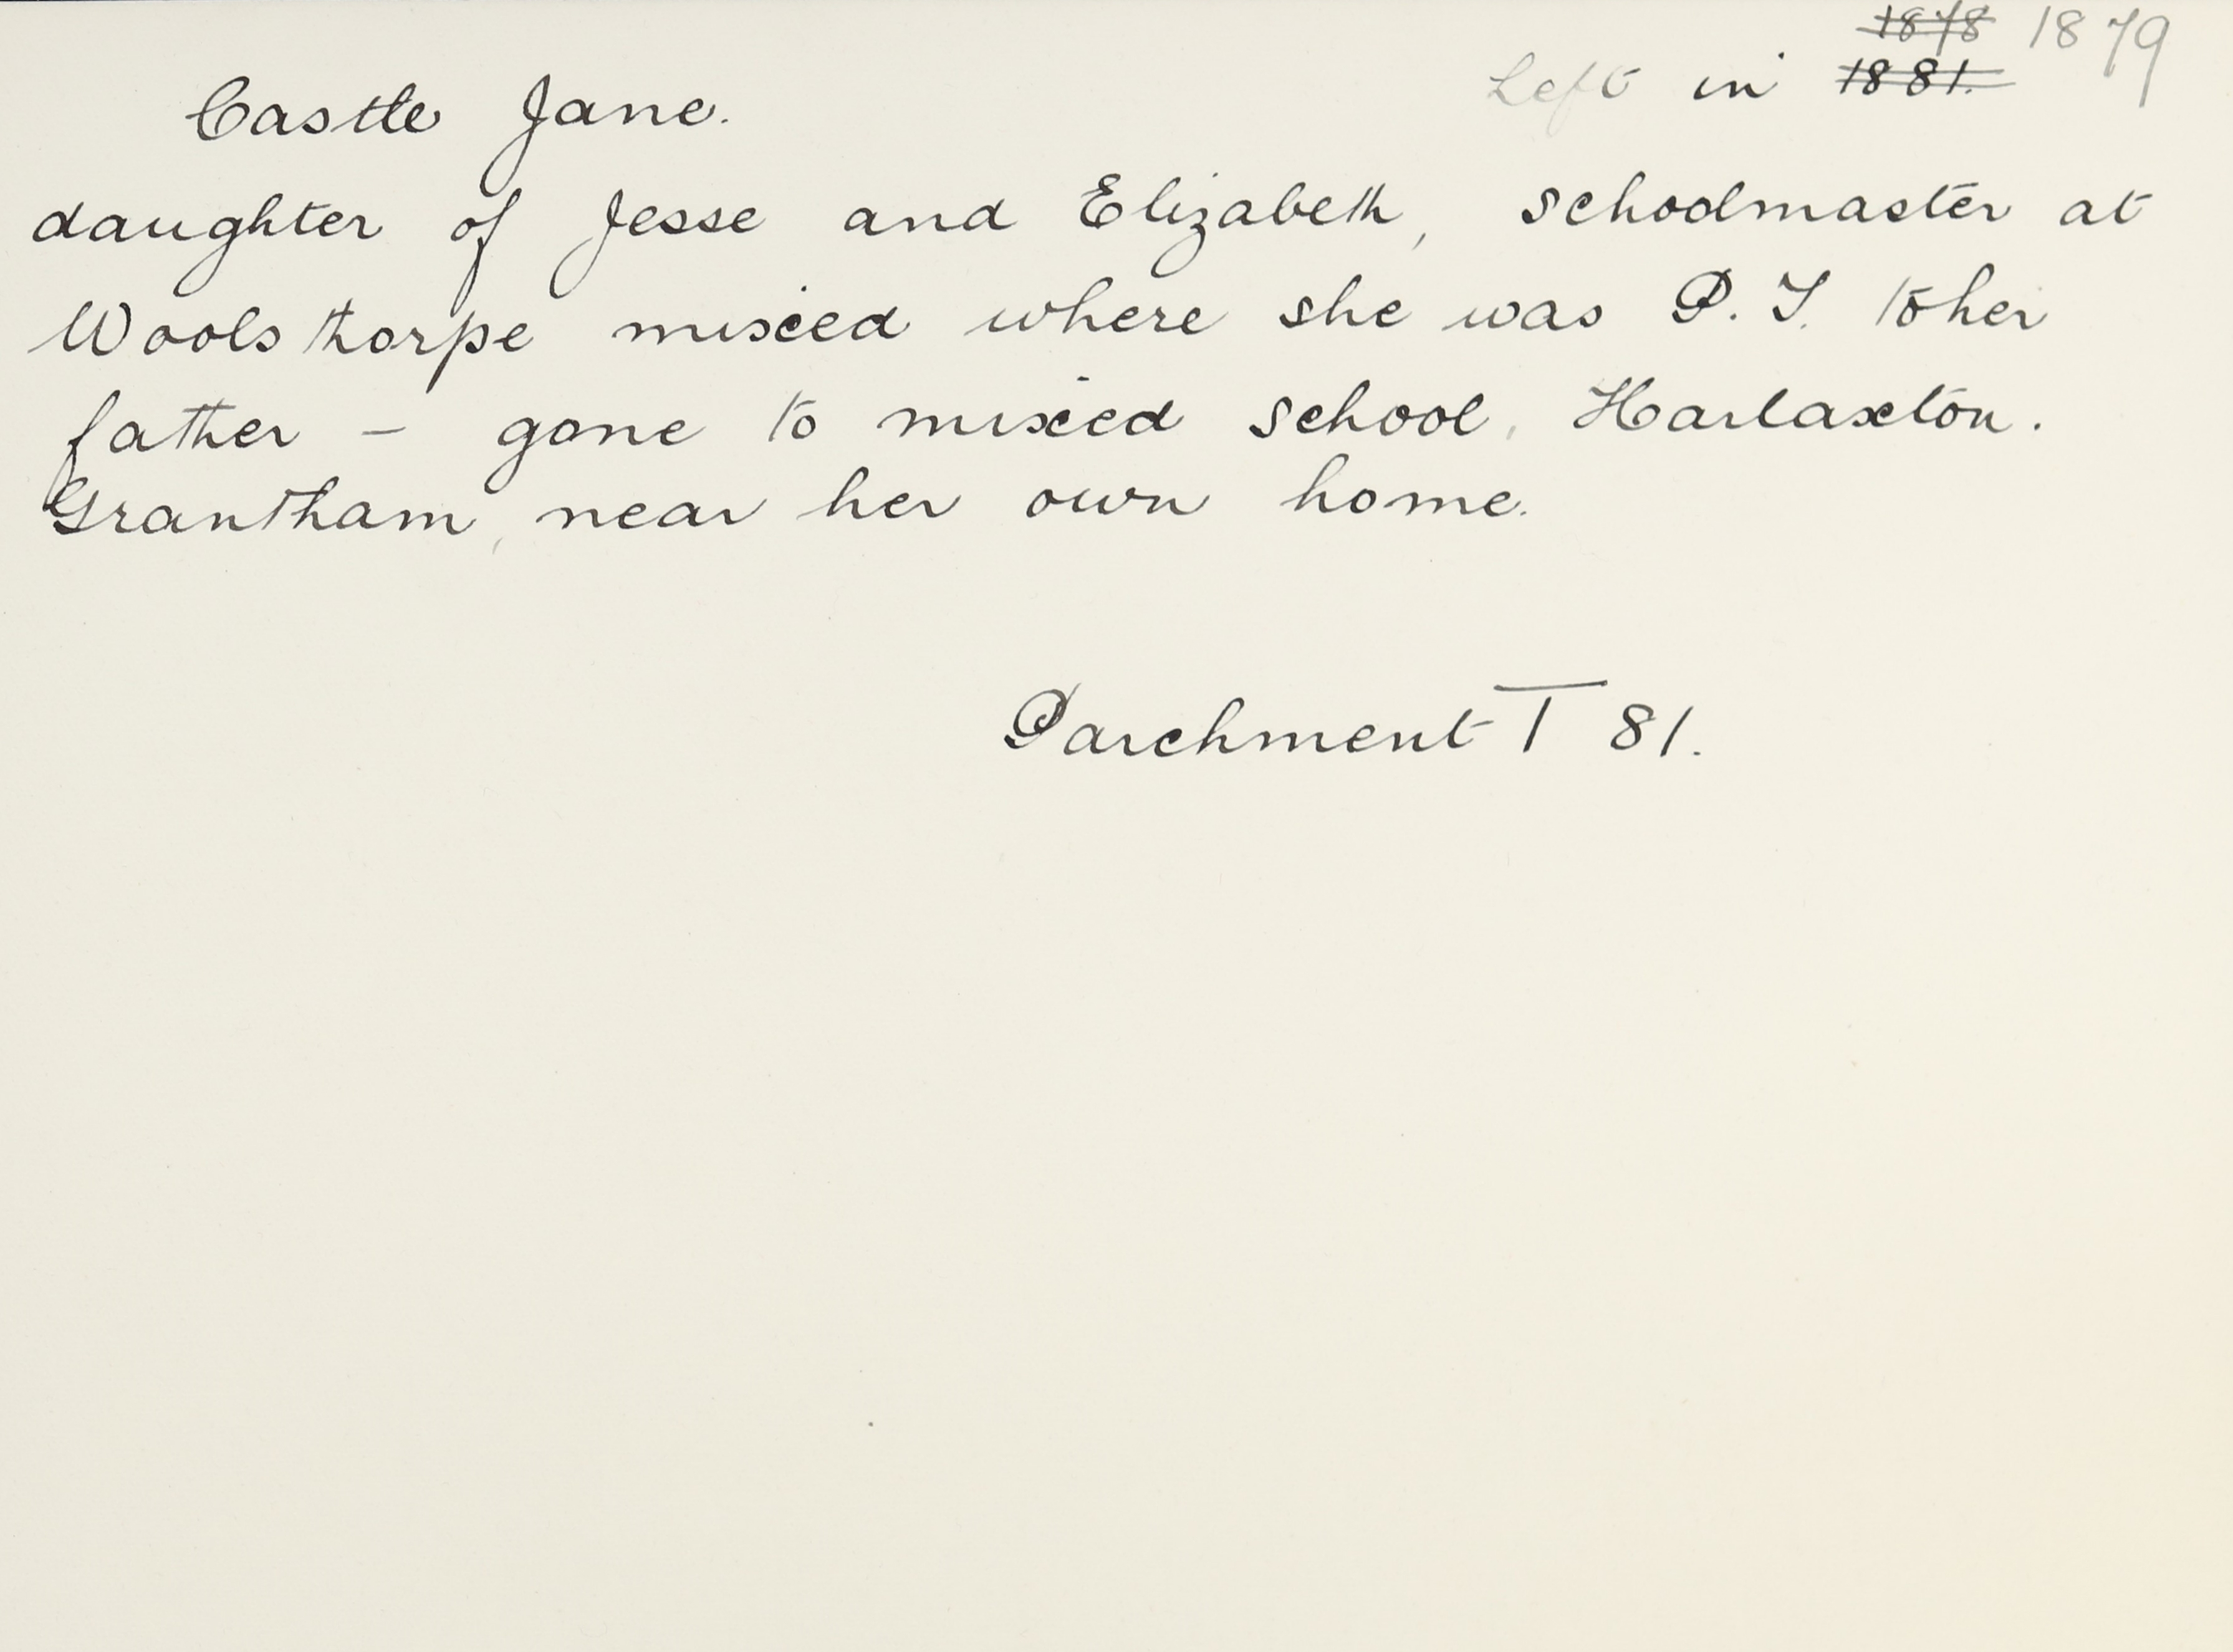 1878 1879
Castle Jane. Left in 1881.
daughter of Jesse and Elizabeth, schoolmaster at
Woolsthorpe mixed where she was P.T. to her
father - gone to mixed school, Harlaxton.
Grantham, near her own home.
Parchment T 81.